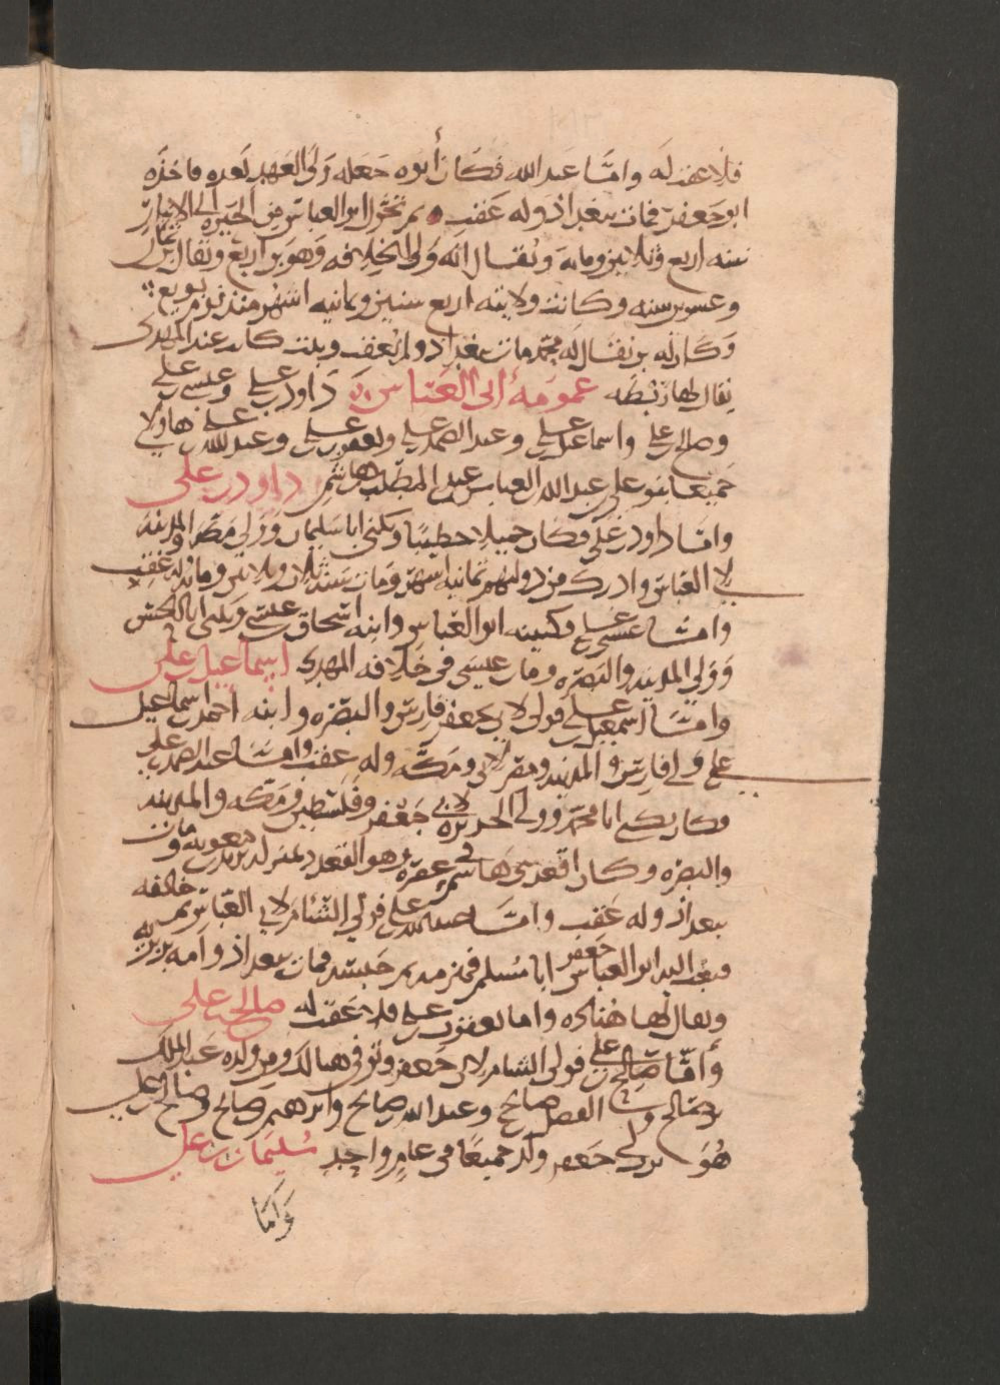 فلا عقب له واما عبد الله فكان أبوه جعله ولى العهد بعده فاخذه
ابو جعفر فمات ببغداذ وله عقب ثم تحول ابو العباس من الحيرة الى الانبار
سنه اربع وثلاثين ومايه وتقال انه ولى الخلافه وهو بن اربع وتقال بن ثمان
وعشرين سنه وكانت ولايته اربع سنين وثمانيه اشهر منذ يوم بويع
وكان له بن يقال له محمد مات ببغداد ولم يعقب وبنت كانت عند المهدى
يقال لها ريطه عمومة أبى العباس داود بن على وعيسى بن على
وصالح بن على واسماعيل بن على وعبد الصمد بن على ويعقوب بن على وعبد الله بن على هاولاي
جميعا بنو على بن عبد الله بن العباس بن عبد المطلب بن هاشم داود بن على
واما داود بن على فكان جميلا خطيبا ويكنى ابا سليمان وولى مكة والمدينه
لابى العباس وادرك من دولتهم ثمانيه اشهر ومات سنه ثلاث وثلاثين ومايه وله عقب
واما عيسى بن على فكنيته ابو العباس وابنه اسحاق بن عيسى ويكنى ابا الحسن
وولى المدينه والبصره ومات عيسى فى خلافه المهدى اسماعيل بن على
واما اسمعيل بن على فولى لابى جعفر فارس والبصره وابنه أحمد بن اسماعيل
بن على ولى فارس والمدينه ومصر ومكه وله عقب واما عبد الصمد بن على
فكان يكنى ابا محمد وولى الجزيرة لابى جعفر وفلسطين ومكه والمدينه
والبصره وكان اقعد بنى هاشم فى عصره وهو القعدد بمنزله يزيد بن معوية ومات
ببغداذ وله عقب واما عبد الله بن على فولى الشام لابى العباس ثم خالفه
فبعث اليه ابو جعفر ابا مسلم فهزمه ثم حبسه فمات ببغداذ وامه بربريه
ويقال لها هناده واما يعقوب بن على فلا عقب له صالح بن على
وأما صالح بن على فولى الشام لابى جعفر وتوفى هنالك ومن ولده عبد الملك
بن صالح والفضل بن صالح وعبد الله بن صالح وابرهيم بن صالح وصالح بن على
هو وابى جعفر ولدا جميعا فى عام واحد سليمان بن على
واما